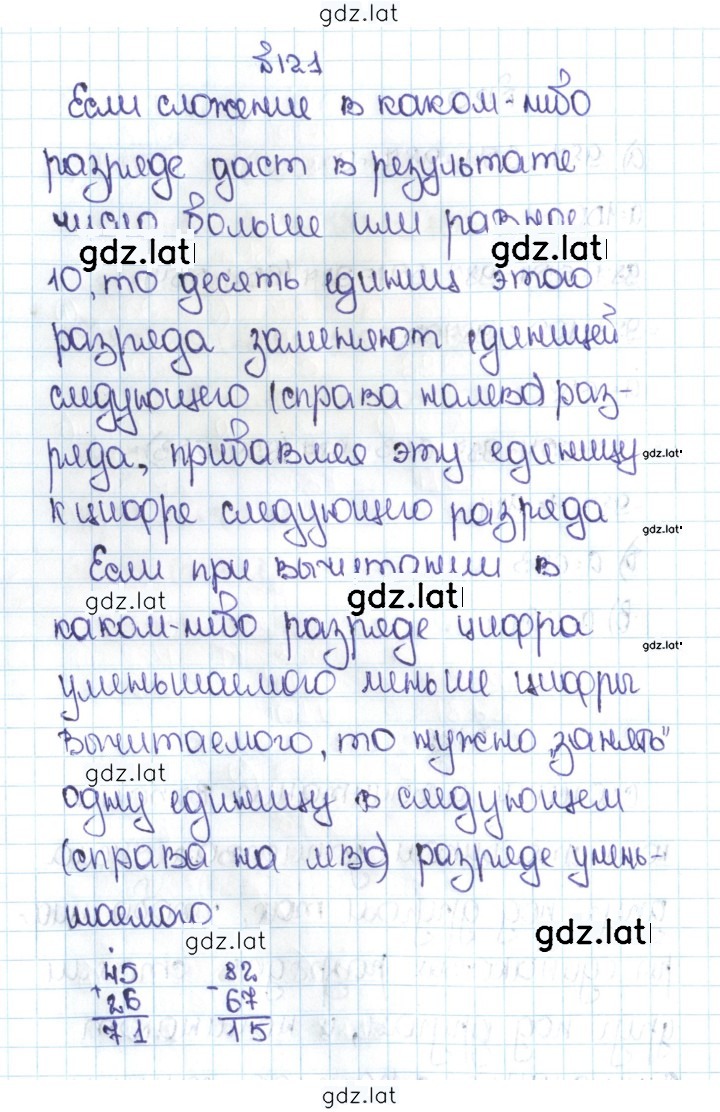 gdz.lat
121
Если сложение в каком-либо
разряде даст в результате
число больше или равное
gdz.lat
gdz.lat
10, то десять единиц этого
разряда заменяют единицей
следующего (справа налево) раз-
ряда, прибавляя эту единицу
gdz.lat
к цифре следующего разряда
gdz.lat
Если при вычитании в
gdz.lat
gdz.lat
каком-либо разряде цифра
gdz.lat
уменьшаемого меньше цифры
вычитаемого, то нужно „занять"
gdz.lat
одну единицу в следующем
(справа на лево) разряде умень-
шаемого.
gdz.lat
gdz.lat
45 82
+ 26 - 67
71 15
gdz.lat